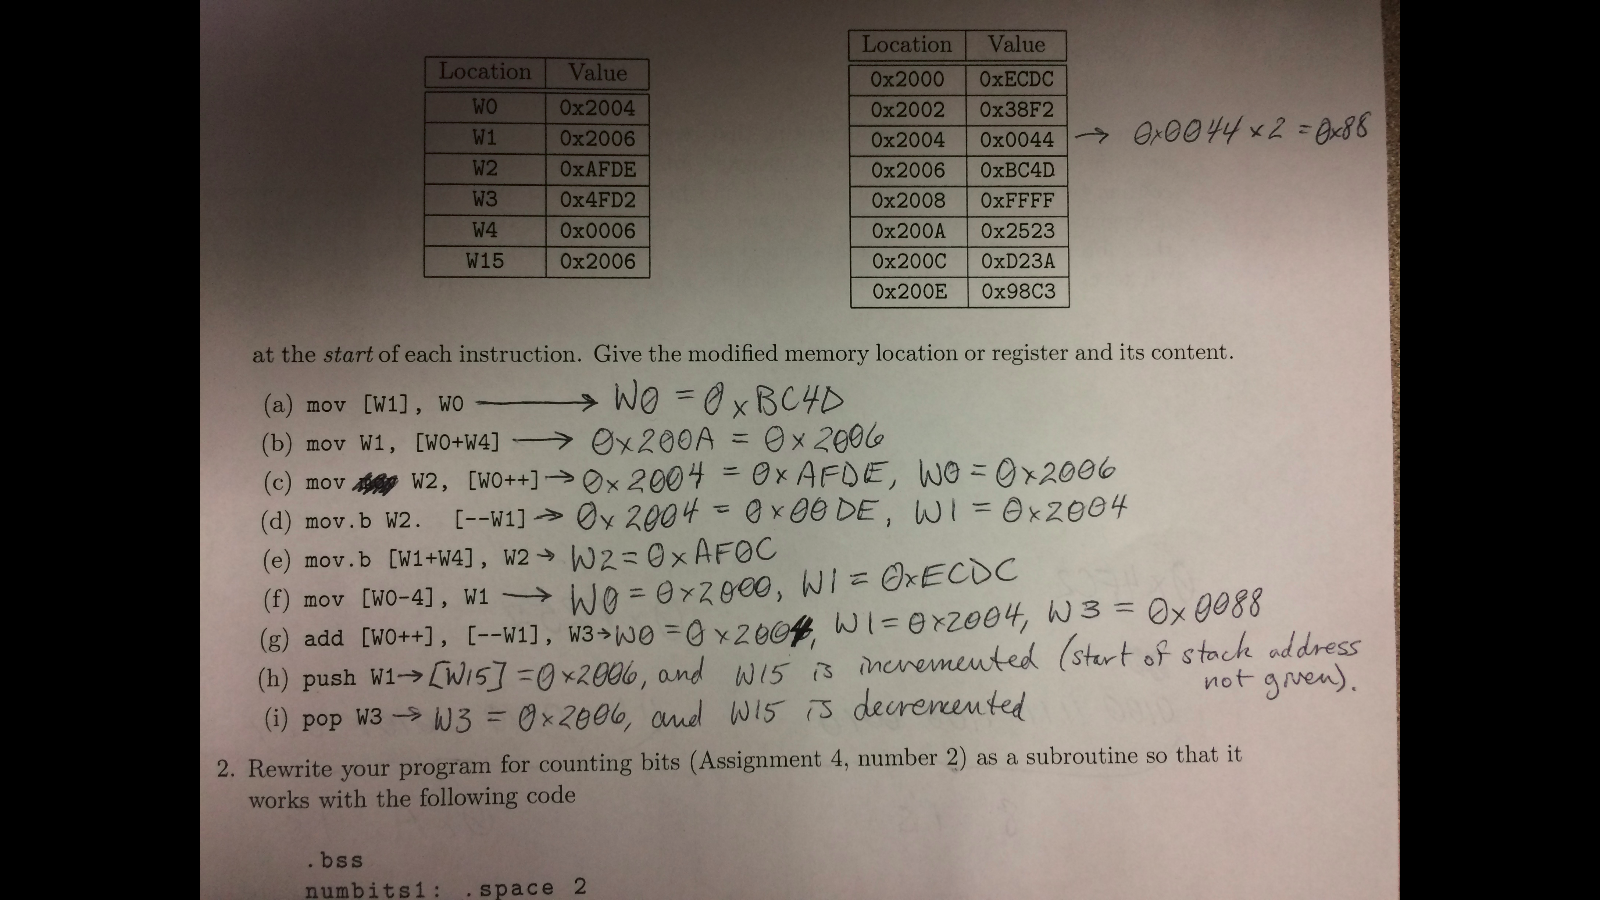 Location Value
W0 0x2004
W1 0x2006
W2 0xAFDE
W3 0x4FD2
W4 0x0006
W15 0x2006
Location Value
0x2000 0xECDC
0x2002 0x38F2
0x2004 0x0044 → 0x0044 x 2 = 0x88
0x2006 0xBC4D
0x2008 0xFFFF
0x200A 0x2523
0x200C 0xD23A
0x200E 0x98C3
at the start of each instruction. Give the modified memory location or register and its content.
(a) mov [W1], W0 → W0 = 0xBC4D
(b) mov W1, [W0+W4] → 0x200A = 0x2006
(c) mov W2, [W0++] → 0x2004 = 0xAFDE, W0 = 0x2006
(d) mov.b W2. [--W1] → 0x2004 = 0x00DE, W1 = 0x2004
(e) mov.b [W1+W4], W2 → W2 = 0xAF0C
(f) mov [W0-4], W1 → W0 = 0x2000, W1 = 0xECDC
(g) add [W0++], [--W1], W3 → W0 = 0x2004, W1 = 0x2004, W3 = 0x0088
(h) push W1 → [W15] = 0x2006, and W15 is incremented (start of stack address
not given).
(i) pop W3 → W3 = 0x2006, and W15 is decremented
2. Rewrite your program for counting bits (Assignment 4, number 2) as a subroutine so that it
works with the following code
.bss
numbits1: .space 2